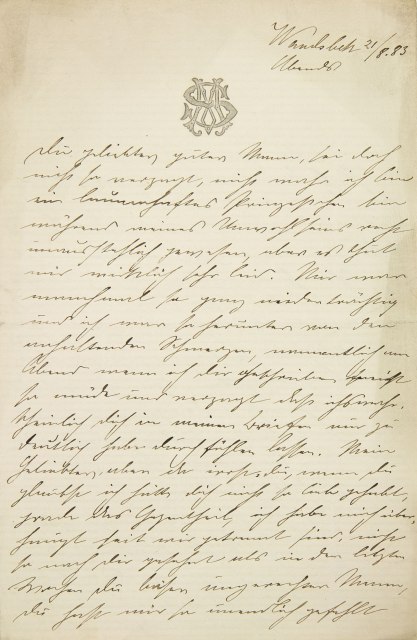 Wandsbek 21/8.83
Abends
Du geliebter guter Mann, sei doch
nicht so verzagt, nicht wahr ich bin
ein launenhaftes Prinzeßchen bin
während meines Unwohlseins recht
unausstehlich gewesen, aber es thut
mir wirklich sehr leid. Mir war
manchmal so ganz niederträchtig
und ich war so herunter von den
anhaltenden Schmerzen, namentlich am
Abend wenn ich Dir geschrieben
so müde und verzagt daß ichs wahr-
scheinlich Dich in meinen Briefen nur zu
deutlich habe durchfühlen lassen. Mein
Geliebter, aber Du irrst Dich, wenn Du
glaubst ich hätte Dich nicht so lieb gehabt,
grade das Gegentheil, ich habe mich über-
haupt seit wir getrennt sind, nicht
so nach Dir gesehnt als in den letzten
Wochen Du böser ungerechter Mann,
Du hast mir so unendlich gefehlt